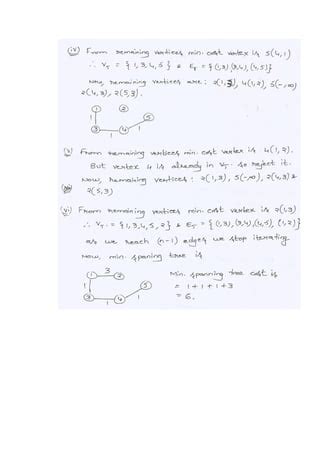 (iv) From remaining vertices min. cost vertex is 5(4,1)
∴ VT = { 1, 3, 4, 5 } & ET = { (1,3) (3,4), (4,5)}
Now, remaining vertices are: 2(1,3), 4(1,2), 5(-,∞)
2(4,3), 2(5,3).
1 2
1 5
3 4
1 1
(v) From remaining vertices min. cost vertex is 4(1,2).
But vertex 4 is already in VT. so reject it.
Now, remaining vertices: 2(1,3), 5(-,∞), 2(4,3) &
2(5,3)
(vi) From remaining vertices min. cost vertex is 2(1,3)
∴ VT. = { 1, 3, 4, 5, 2 } & ET = { (1,3), (3,4), (4,5), (1,2)}
as we reach (n-1) edges we stop iterating
Now, min. spaning tree is
3
1 2
Min. spanning tree cost is
1 5
= 1 + 1 + 1 + 3
3 4
1 1
= 6.